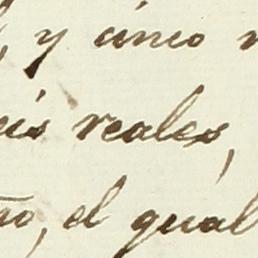 y cinco
reales,
el qual